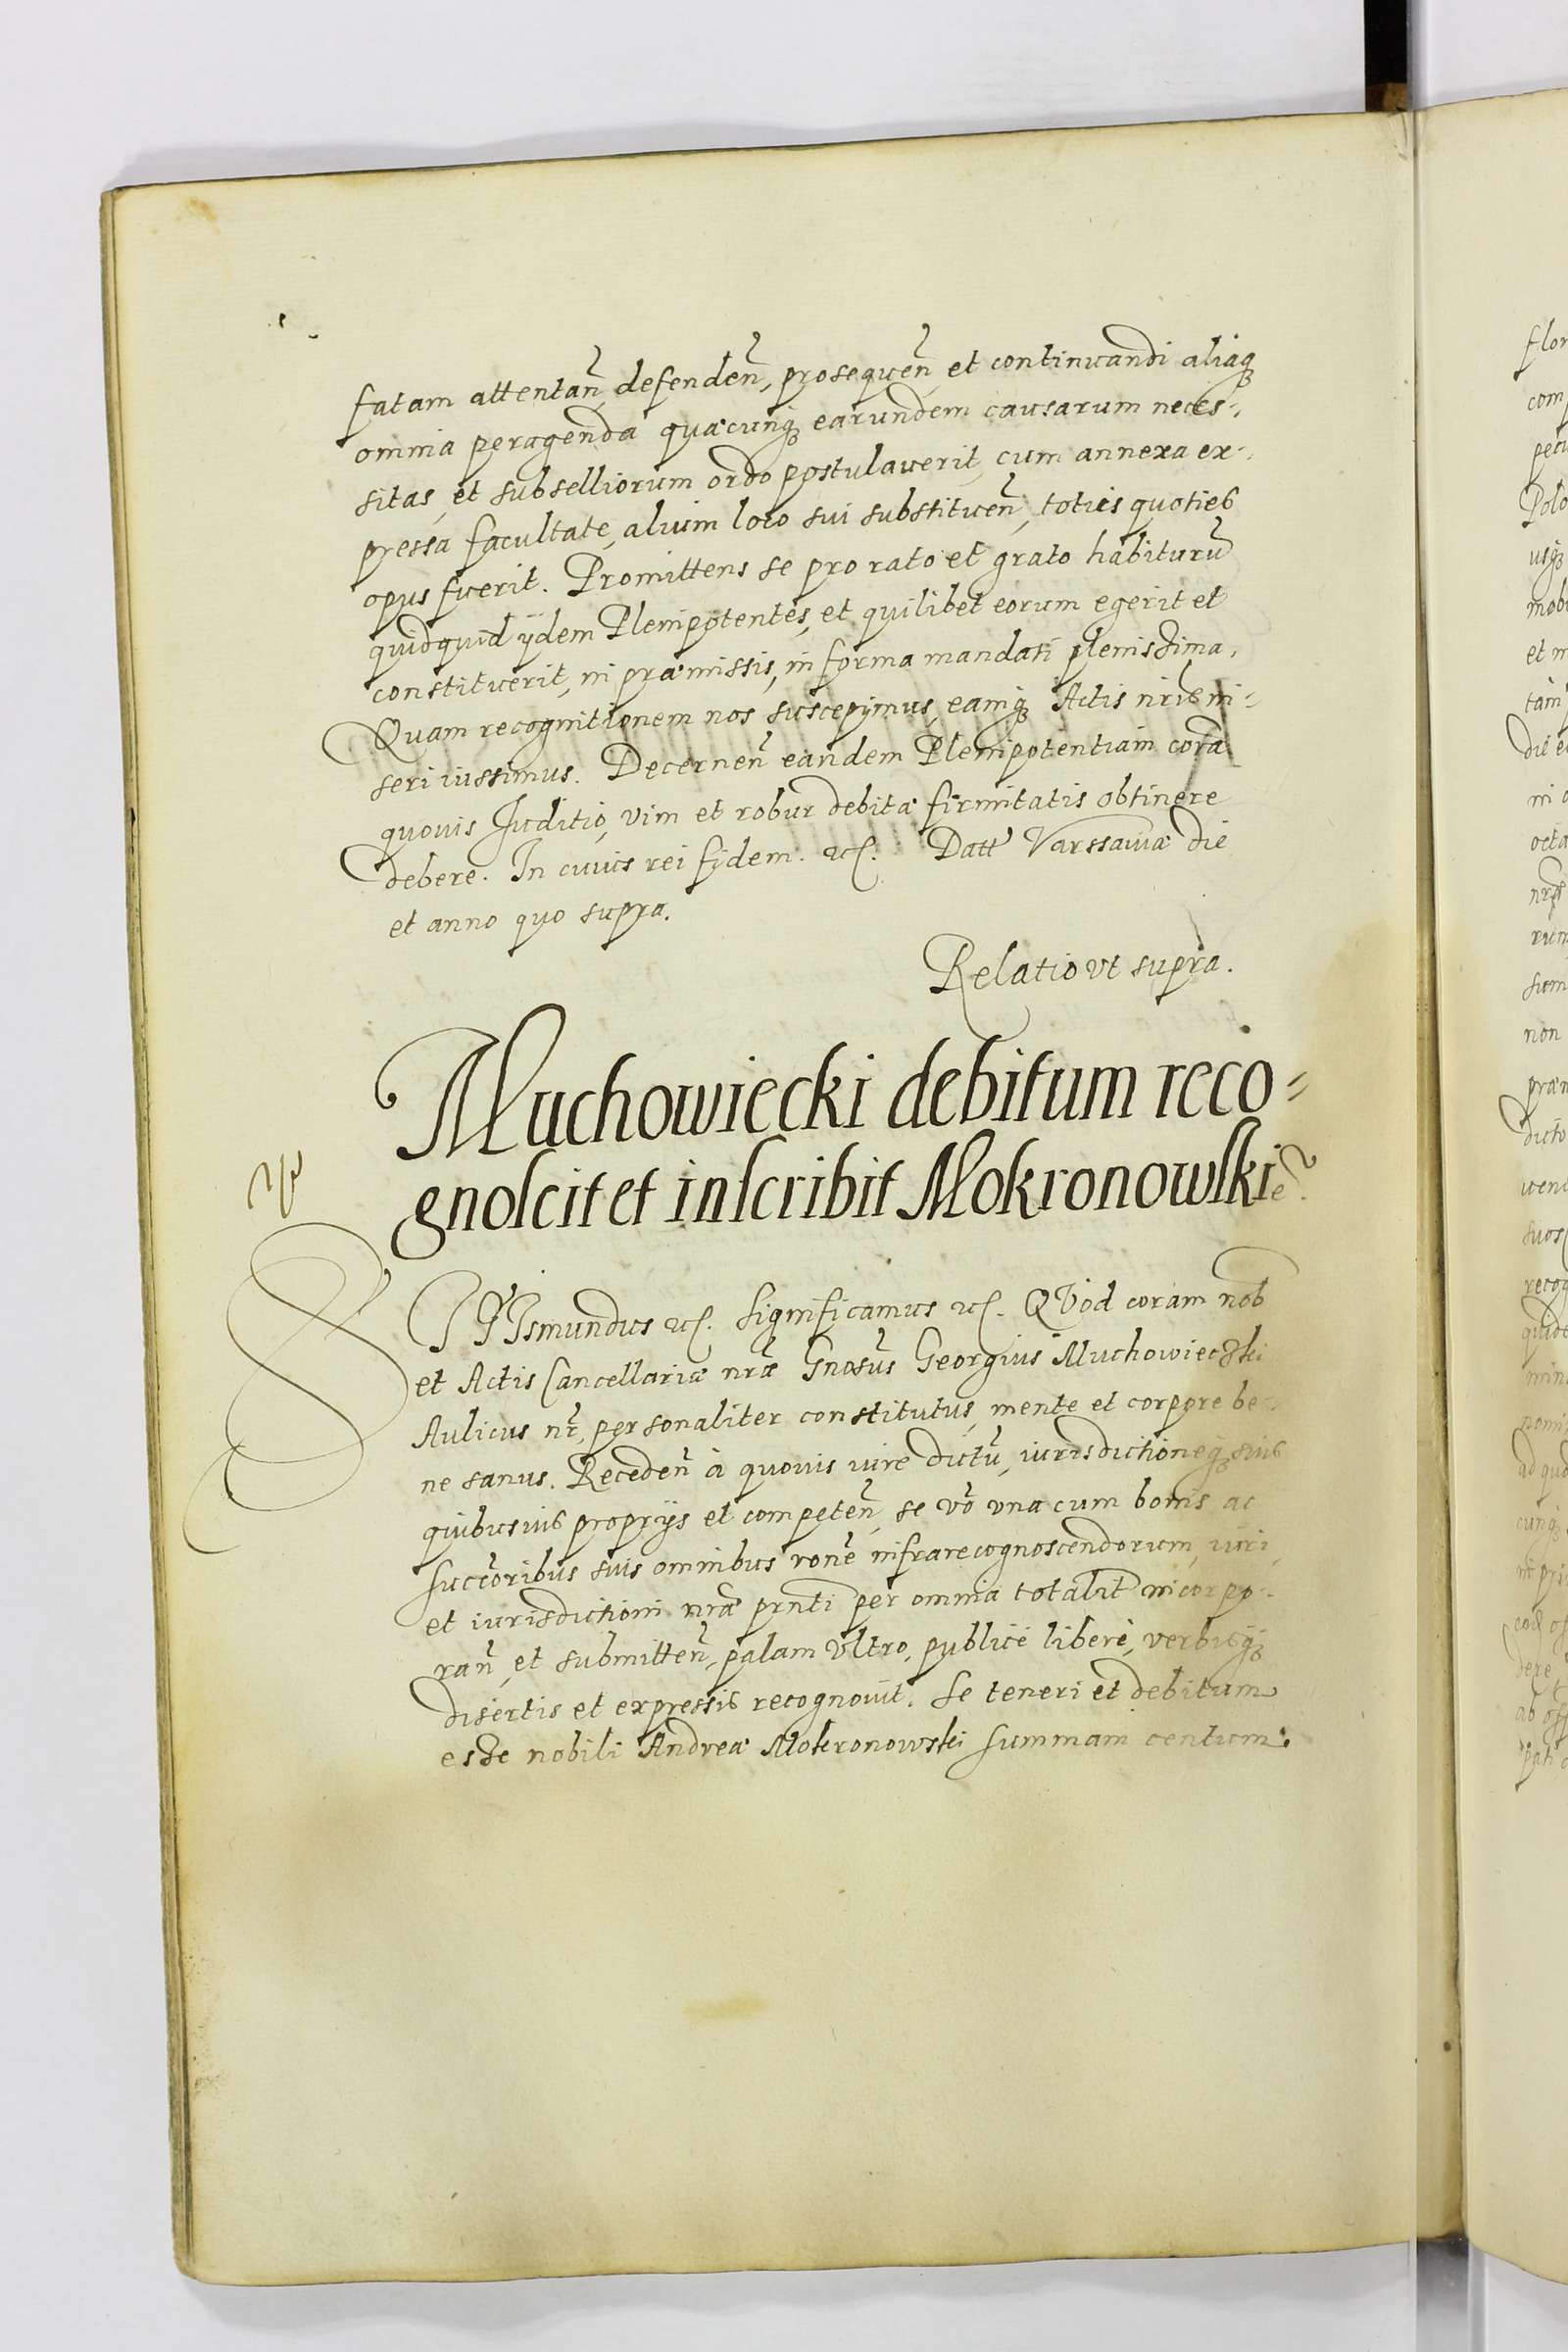 fatam attentan̄ defenden̄, prosequen̄ et continuandi aliaq3
omnia peragenda quæcunq3 earundem causarum neces-
sitas, et subselliorum ordo postulauerit, cum annexa ex-
pressa facultate, alium loco sui substituen̄, toties quoties
opus fuerit. Promittens se pro rato et grato habiturū
quidquid ijdem Plenipotentes, et quilibet eorum egerit et
constituerit, in præmissis, in forma mandati plenissima.
Quam recognitionem nos suscepimus, eamq3 Actis nris in-
seri iussimus. Decernen̄ eandem Plenipotentiam corā
quouis Juditio, vim et robur debitæ firmitatis obtinere
debere. In cuius rei fidem. etc. Datt Varssauiæ die
et anno quo supra.
Relatio vt supra.
Muchowiecki debitum reco-
gnoscit et inscribit Mokronowskie
SIGIsmundus etc. Significamus etc. QVod coram nob
et Actis Cancellariæ nræ Gnosus Georgius Muchowieczki
Aulicus nr̄, personaliter constitutus, mente et corpore be-
ne sanus. Receden̄ à quouis iure dictū, iurisdictioneq3 suis
quibusuis proprijs et competen̄, se vo vna cum bonis ac
succoribus suis omnibus rone infrarecognoscendorum, iuri
et iurisdictioni nræ prnti per omnia totalit incorpo-
ran̄, et submitten̄, palam vltro, publicè liberè, verbisq3
disertis et expressis recognouit. Se teneri et debitum
esse nobili Andreæ Mokronowski summam centum
flor
com
Polo
usq3
et m
octa
non
dicto
suos
recog